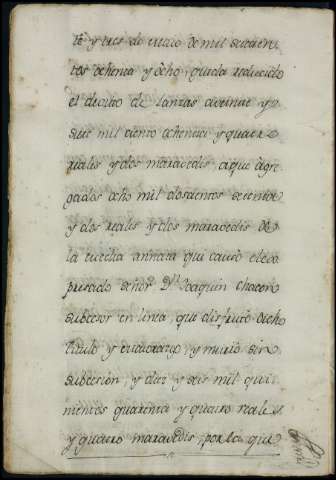 te y tres de enero de mil setecien
tos ochenta y ocho, queda reducido
el devito de Lanzas a veinte y
siete mil ciento ochenta y quatro
reales y dos maravedis, a que agre
gados ocho mil doscientos setenta
y dos reales y dos maravedis de
la media annata que causó el ex
presado señor Dn Joaquin Chacon
subcesor en linea, que disfrutó dicho
titulo y murio sin
subcesion, y diez y seis mil qui
nientos quarenta y quatro reales
y quatro maravedis, por la que